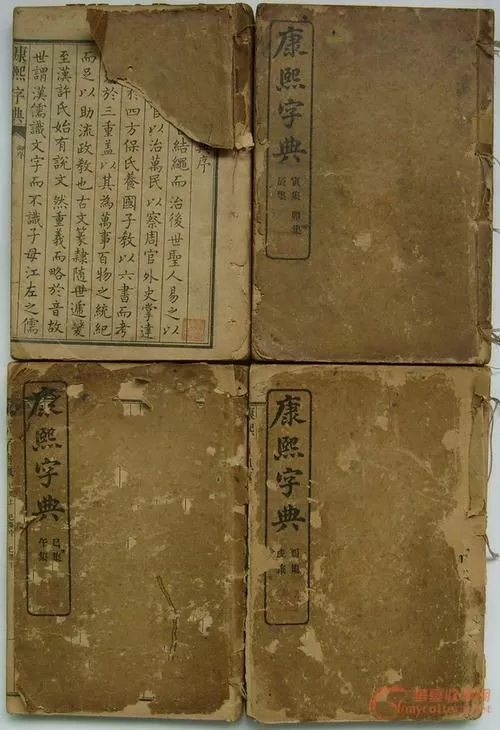 典序
結繩而治後世聖人易之以
官以治萬民以察周官外史掌達
於四方保氏養國子教以六書而考
於三重蓋以其為萬事百物之統紀
而足以助流政教也古文篆隸隨世遞變
至漢許氏始有說文然重義而略於音故
世謂漢儒識文字而不識子母江左之儒
康熙字典
康熙字典
寅集 卯集
辰集
康熙字典
巳集
午集
康熙字典
戌集